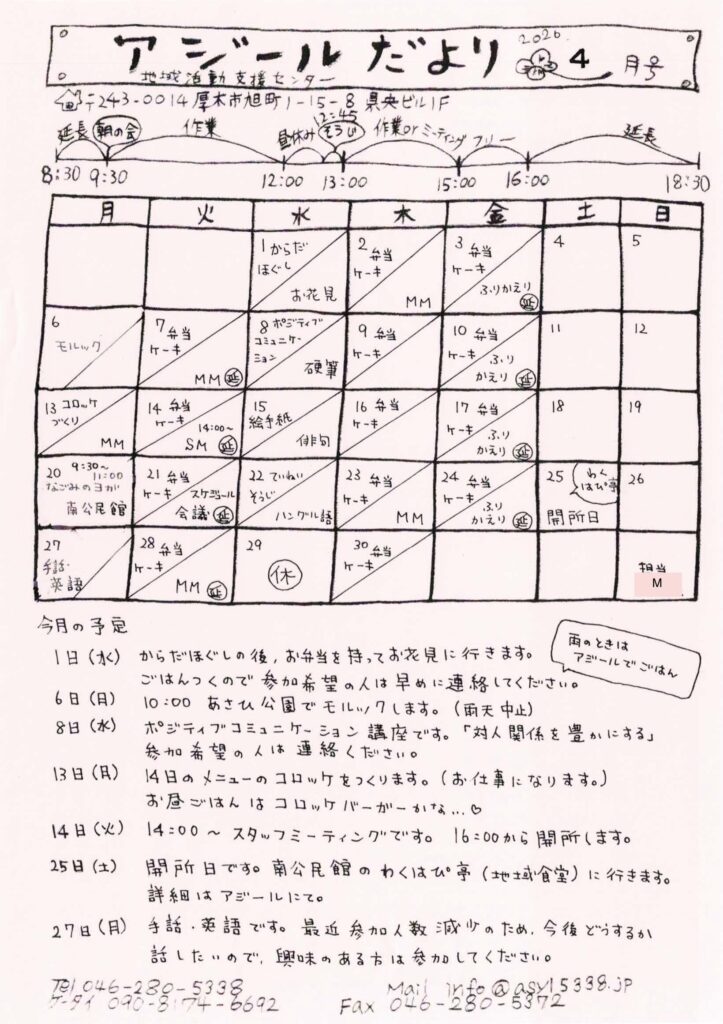 アジールだより
2026.
4
月号
地域活動支援センター
〒243-0014 厚木市旭町1-15-8 県央ビル1F
延長 朝の会 作業 昼休み 12:45 そうじ 作業orミーティング フリー 延長
8:30 9:30 12:00 13:00 15:00 16:00 18:30
月 火 水 木 金 土 日
1 からだほぐし お花見
2 弁当 ケーキ MM
3 弁当 ケーキ ふりかえり 延
4
5
6 モルック
7 弁当 ケーキ MM 延
8 ポジティブコミュニケーション 硬筆
9 弁当 ケーキ
10 弁当 ケーキ ふりかえり 延
11
12
13 コロッケづくり MM
14 弁当 ケーキ 14:00〜 SM 延
15 絵手紙 俳句
16 弁当 ケーキ
17 弁当 ケーキ ふりかえり 延
18
19
20 9:30〜11:00 なごみのヨガ 南公民館
21 弁当 ケーキ スケジュール会議 延
22 ていねいそうじ ハングル語
23 弁当 ケーキ MM
24 弁当 ケーキ ふりかえり 延
25 わくはぴ亭 開所日
26
27 手話・英語
28 弁当 ケーキ MM 延
29 休
30 弁当 ケーキ
担当
M
今月の予定
1日(水) からだほぐしの後、お弁当を持ってお花見に行きます。
ごはんつくので参加希望の人は早めに連絡してください。
雨のときは
アジールでごはん
6日(月) 10:00 あさひ公園でモルックします。(雨天中止)
8日(水) ポジティブコミュニケーション講座です。「対人関係を豊かにする」
参加希望の人は連絡ください。
13日(月) 14日のメニューのコロッケをつくります。(お仕事になります。)
お昼ごはんはコロッケバーガーかな...♡
14日(火) 14:00〜スタッフミーティングです。 16:00から開所します。
25日(土) 開所日です。南公民館のわくはぴ亭(地域食堂)に行きます。
詳細はアジールにて。
27日(月) 手話・英語です。最近参加人数減少のため、今後どうするか
話したいので、興味のある方は参加してください。
Tel 046-280-5338 Mail info@asyl5338.jp
ケータイ 090-8174-6692 Fax 046-280-5372